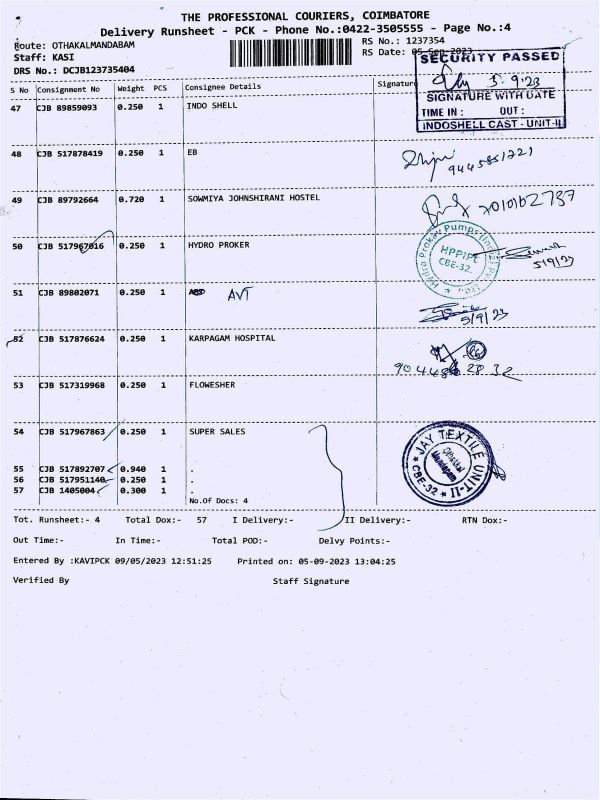 THE PROFESSIONAL COURIERS, COIMBATORE
Delivery Runsheet - PCK - Phone No.:0422-3505555 - Page No.:4
Route: OTHAKALMANDABAM
RS No.: 1237354
Staff: KASI
RS Date: 05-Sep-2023
DRS No.: DCJB123735404
SECURITY PASSED
5.9/23
SIGNATURE WITH DATE
TIME IN : OUT :
INDOSHELL CAST - UNIT-II
S No Consignment No Weight PCS Consignee Details Signature
47 CJB 89859093 0.250 1 INDO SHELL
48 CJB 517878419 0.250 1 EB
9445851721
49 CJB 89792664 0.720 1 SOWMIYA JOHNSHIRANI HOSTEL
7010162737
50 CJB 517967016 0.250 1 HYDRO PROKER
Hydro Prokav Pumps
HPPIPL
CBE-32.
5/9/23
51 CJB 89802071 0.250 1 AVT
5/9/23
52 CJB 517876624 0.250 1 KARPAGAM HOSPITAL
53 CJB 517319968 0.250 1 FLOWESHER
54 CJB 517967863 0.250 1 SUPER SALES
JAY TEXTILE UNIT-II
Othakkal
Mandapam
CBE-32
55 CJB 517892707 0.940 1 .
56 CJB 517951140 0.250 1 .
57 CJB 1405004 0.300 1 .
No.Of Docs: 4
Tot. Runsheet:- 4 Total Dox:- 57 I Delivery:- II Delivery:- RTN Dox:-
Out Time:- In Time:- Total POD:- Delvy Points:-
Entered By :KAVIPCK 09/05/2023 12:51:25 Printed on: 05-09-2023 13:04:25
Verified By Staff Signature